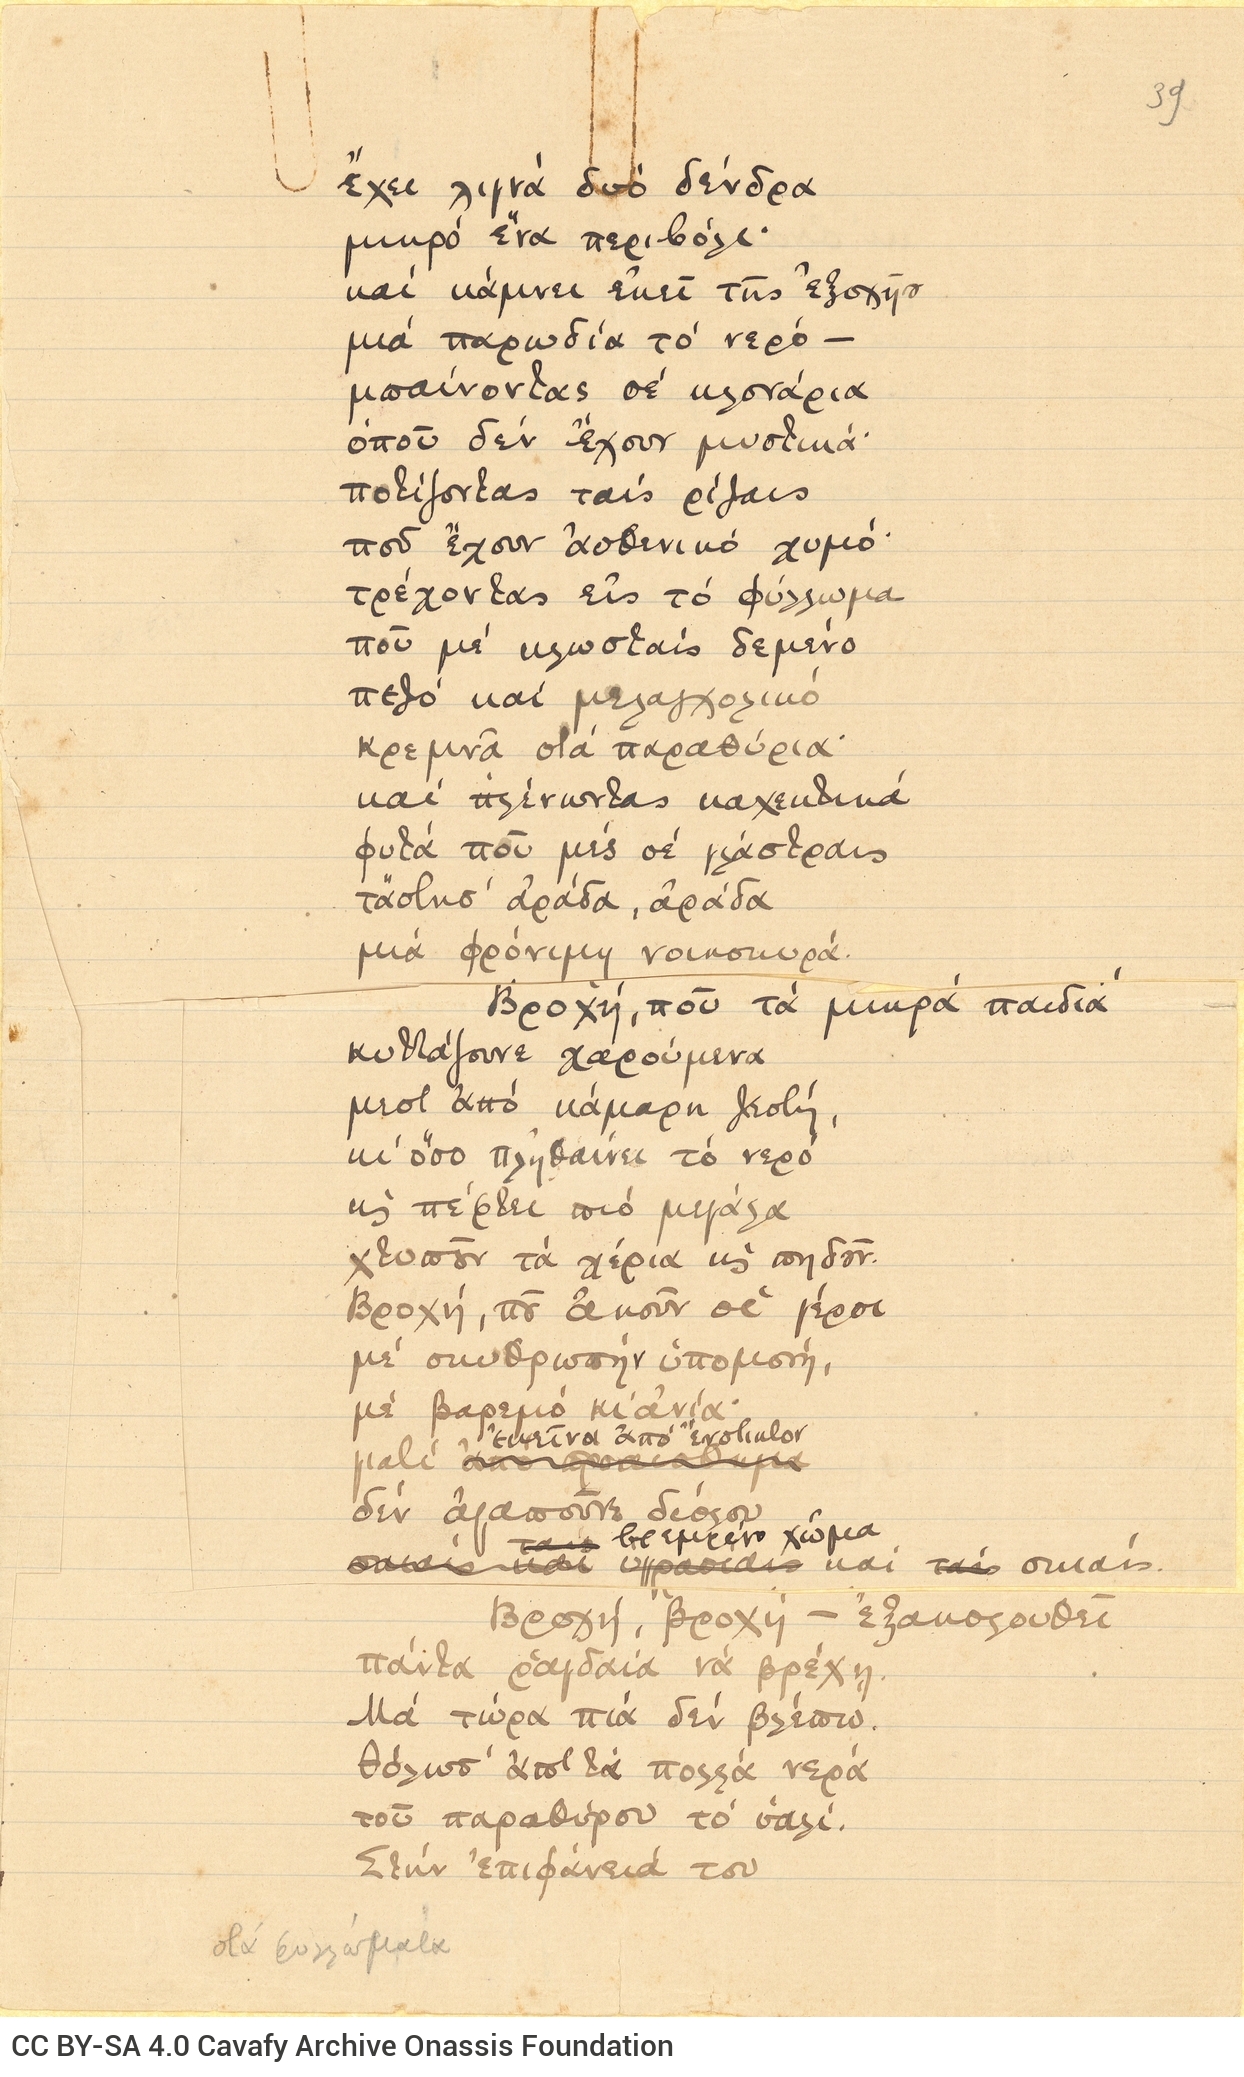 39
ἔχει λιγνά δυό δένδρα
μικρό ἕνα περιβόλι·
καί κάμνει ἐκεῖ τῆς ἐξοχῆς
μιά παρωδία τό νερό —
μπαίνοντας σέ κλονάρια
ὁποῦ δέν ἔχουν μυστικά·
ποτίζοντας ταίς ρίζαις
ποῦ ἔχουν ἀσθενικό χυμό·
τρέχοντας εἰς τό φύλλωμα
ποῦ μέ κλωσταίς δεμένο
πεζό καί μελαγχολικό
κρεμνᾶ στά παραθύρια·
καί πλένοντας καχεκτικά
φυτά ποῦ μές σέ γλάστραις
τἄστησ' ἀράδα, ἀράδα
μιά φρόνιμη νοικοκυρά.
Βροχή, ποῦ τά μικρά παιδιά
κυττάζουνε χαρούμενα
μεσ' ἀπό κάμαρη ζεστή,
κι' ὅσο πληθαίνει τό νερό
κὶ πέφτει πιό μεγάλα
χτυποῦν τά χέρια κὶ πηδοῦν.
Βροχή, ποῦ ἀκοῦν οἱ γέροι
μέ σκυθρωπήν ὑπομονή,
μέ βαρεμό κι' ἀνία·
ἐκεῖνα ἀπό ἔνστικτον
γιατί
δέν ἀγαποῦνε διόλου
ταις βρεμμένο χῶμα
σκιαίς καί ὑγρασίαις καί ταίς σκιαίς.
Βροχή, βροχή — ἐξακολουθεῖ
πάντα ῥαγδαία νά βρέχῃ.
Μά τώρα πιά δέν βλέπω.
Θόλωσ' ἀπ' τά πολλά νερά
τοῦ παραθύρου τό ὑαλί.
Στήν ἐπιφάνειά του
στά φυλλώματα
CC BY-SA 4.0 Cavafy Archive Onassis Foundation